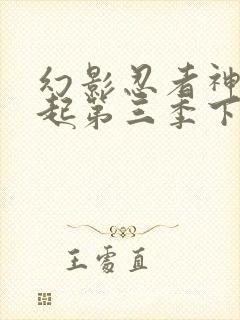 幻影忍者神
起第三季下
王雳直